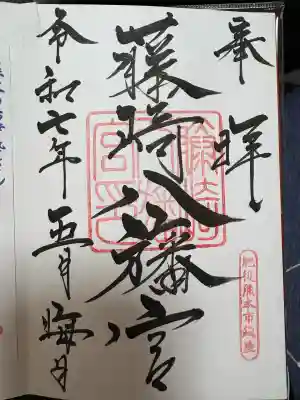 奉拝
藤崎八旛宮
令和七年五月晦日
肥後熊本市鎮座